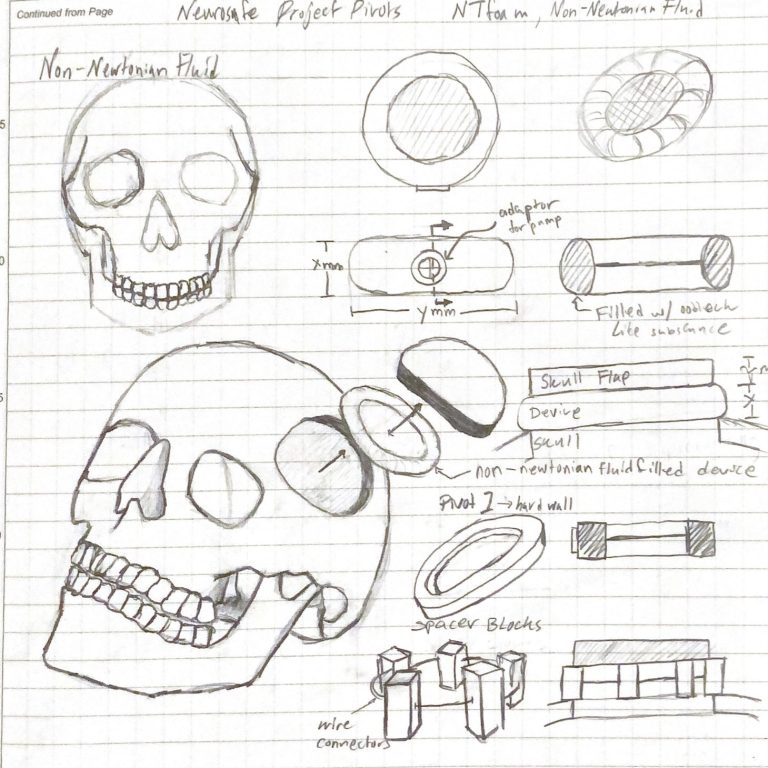 Continued from Page
Neurosafe Project Pivots
NTfoam, Non-Newtonian Fluid
Non-Newtonian Fluid
adaptor
for pump
X mm
y mm
Filled w/ oobleck
like substance
Skull Flap
Device
Skull
X
non-newtonian fluid filled device
Pivot 1 → hard wall
Spacer Blocks
wire
connectors